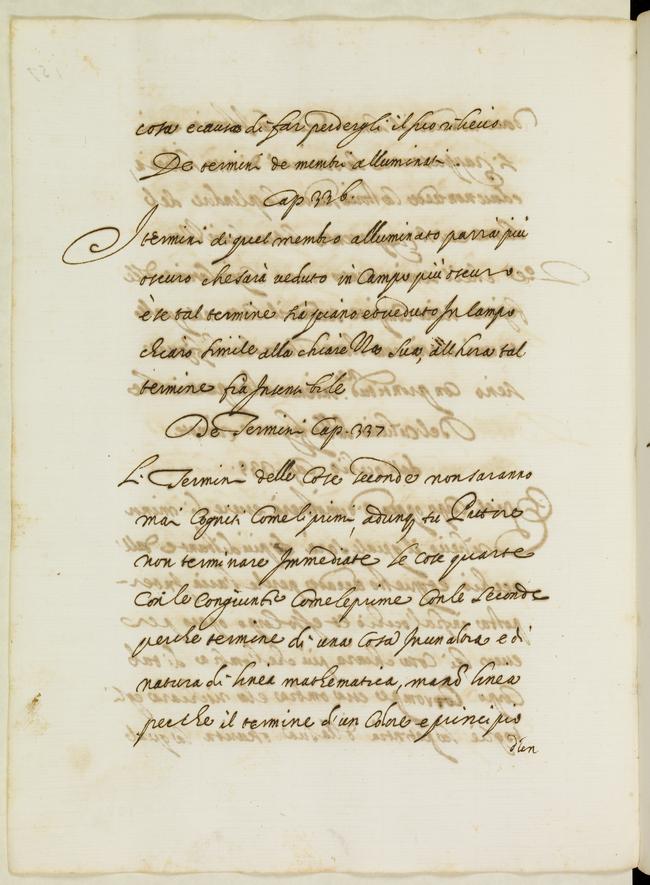 cosa è causa di far perdergli il suo rilievo
De termini de membri alluminati
Cap 336.
I termini di quel membro alluminato parrà più
oscuro che sarà veduto in Campo più oscuro
è se tal termine sia veduto In Campo
chiaro simile alla chiarezza sua, all'hora tal
termine fia Insensibile
De Termini Cap. 337
Li Termini delle Cose seconde non saranno
mai Cogniti Come li primi, adunq tu Pittore
non terminare Immediate le cose quarte
Con le Congiunte Come le prime Con le Seconde
perche termine di una Cosa In un altra è di
natura di linea mathematica, ma nõ linea
perche il termine d'un Colore e principio
d'un